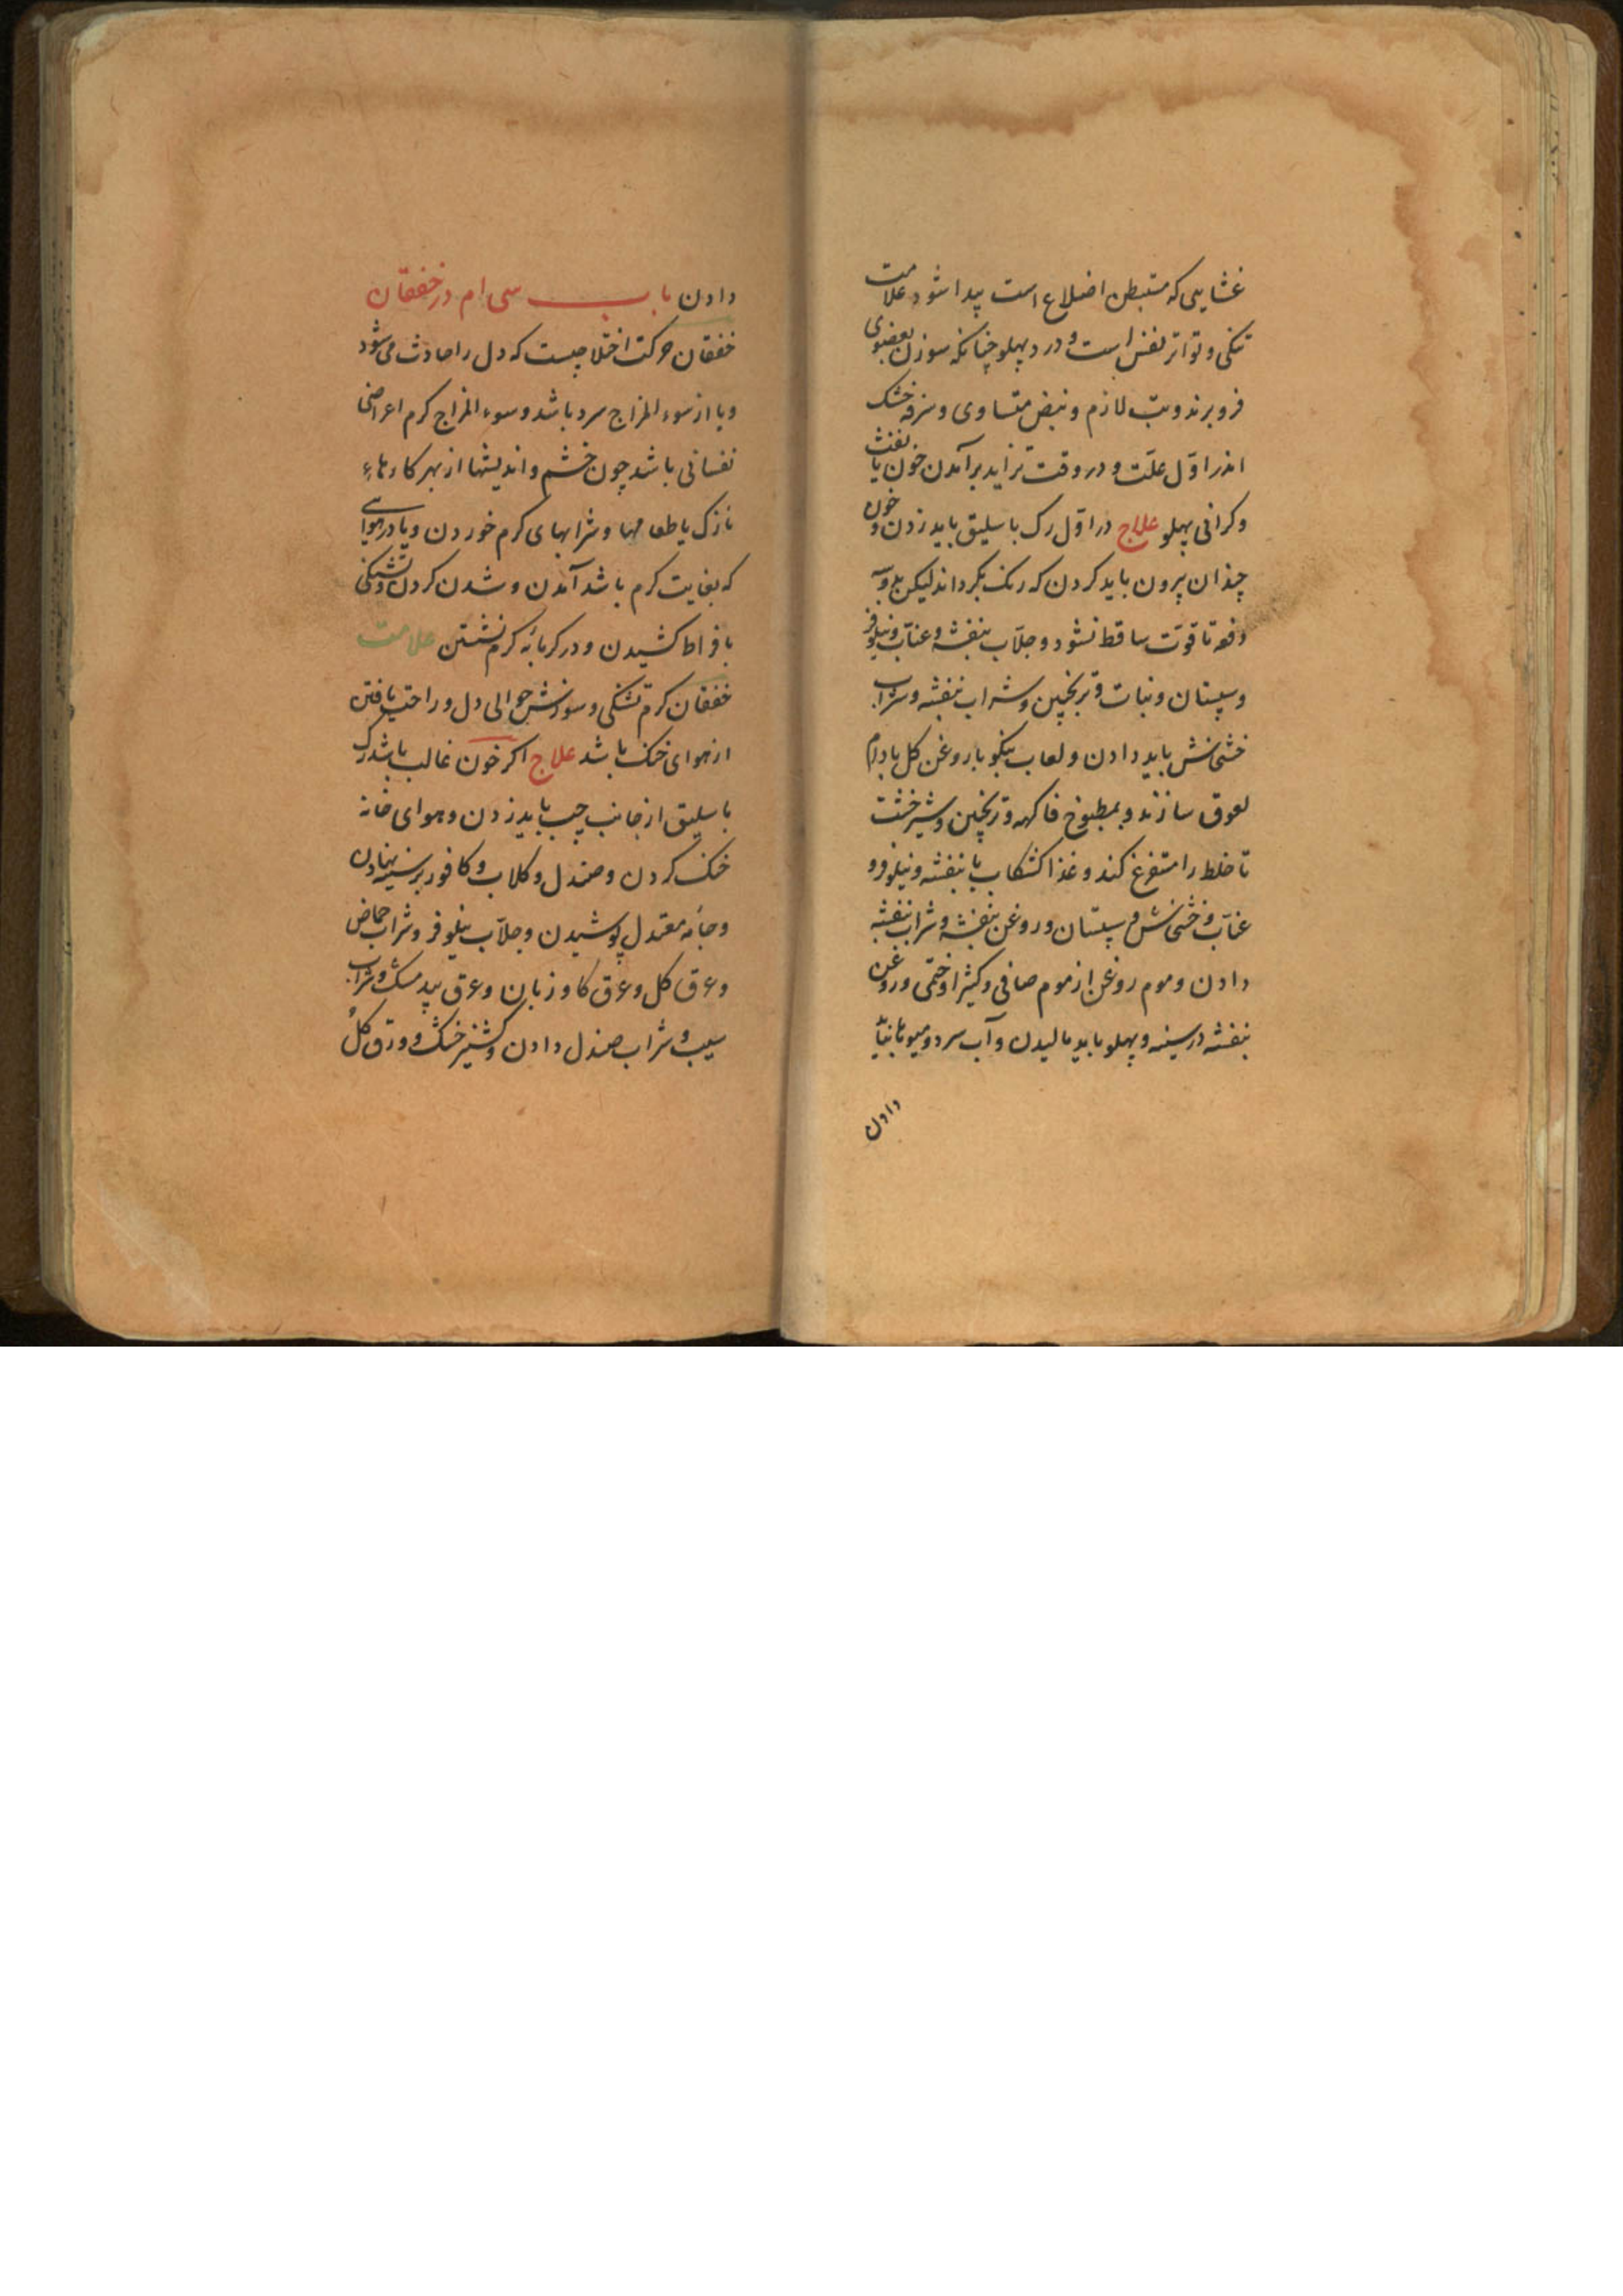 غشایی که مستبطن اضلاع است پیدا شود علامت
تنکی و تواتر نفس است و درد پهلو چنانکه سوزن بعضوی
فرو برند و تب لازم و نبض متساوی و سرفه خشک
اندر اوّل علّت و در وقت تزاید برآمدن خون یا نفث
و کرانی پهلو علاج در اوّل رک باسلیق باید زدن و خون
چندان بیرون باید کردن که رنک بکرداند لیکن
دفعه تا قوّت ساقط نشود و جلّاب بنفشه و عنّاب و نیلوفر
و سپستان و نبات و ترنجبین و شراب بنفشه و شراب
خشخاش باید دادن و لعاب بنکو با روغن کل بادام
لعوق سازند و بمطبوخ فاکهه و ترنجبین و شیرخشت
تا خلط را مستفرغ کند و غذا کشکاب با بنفشه و نیلوفر و
عنّاب و خشخاش و سپستان و روغن بنفشه و شراب بنفشه
دادن و موم روغن از موم صافی و کثیرا و ختمی و روغن
بنفشه در سینه و پهلو باید مالیدن و آب سرد و میوها نباید
دادن
دادن باب سی ام در خفقان
خفقان حرکت اختلاجیست که دل را حادث می شود
و یا از سوء المزاج سرد باشد و سوء المزاج کرم اعراضی
نفسانی باشد چون خشم و اندیشها از بهر کارهاء
نازک یا طعامها و شرابهای کرم خوردن و یا در هوایی
که بغایت کرم باشد آمدن و شدن کردن و تشنکی
بافراط کشیدن و در کرمابه کرم نشستن علامت
خفقان کرم تشنکی و سوزش حوالی دل و راحت یافتن
از هوای خنک باشد علاج اکر خون غالب باشد رک
باسلیق از جانب چپ باید زدن و هوای خانه
خنک کردن و صندل و کلاب و کافور بر سینه نهادن
و جامه معتدل پوشیدن و جلّاب نیلوفر و شراب حماض
و عرق کل و عرق کاوزبان و عرق بیدمشک و شراب
سیب و شراب صندل دادن و کشنیز خشک و ورق کل